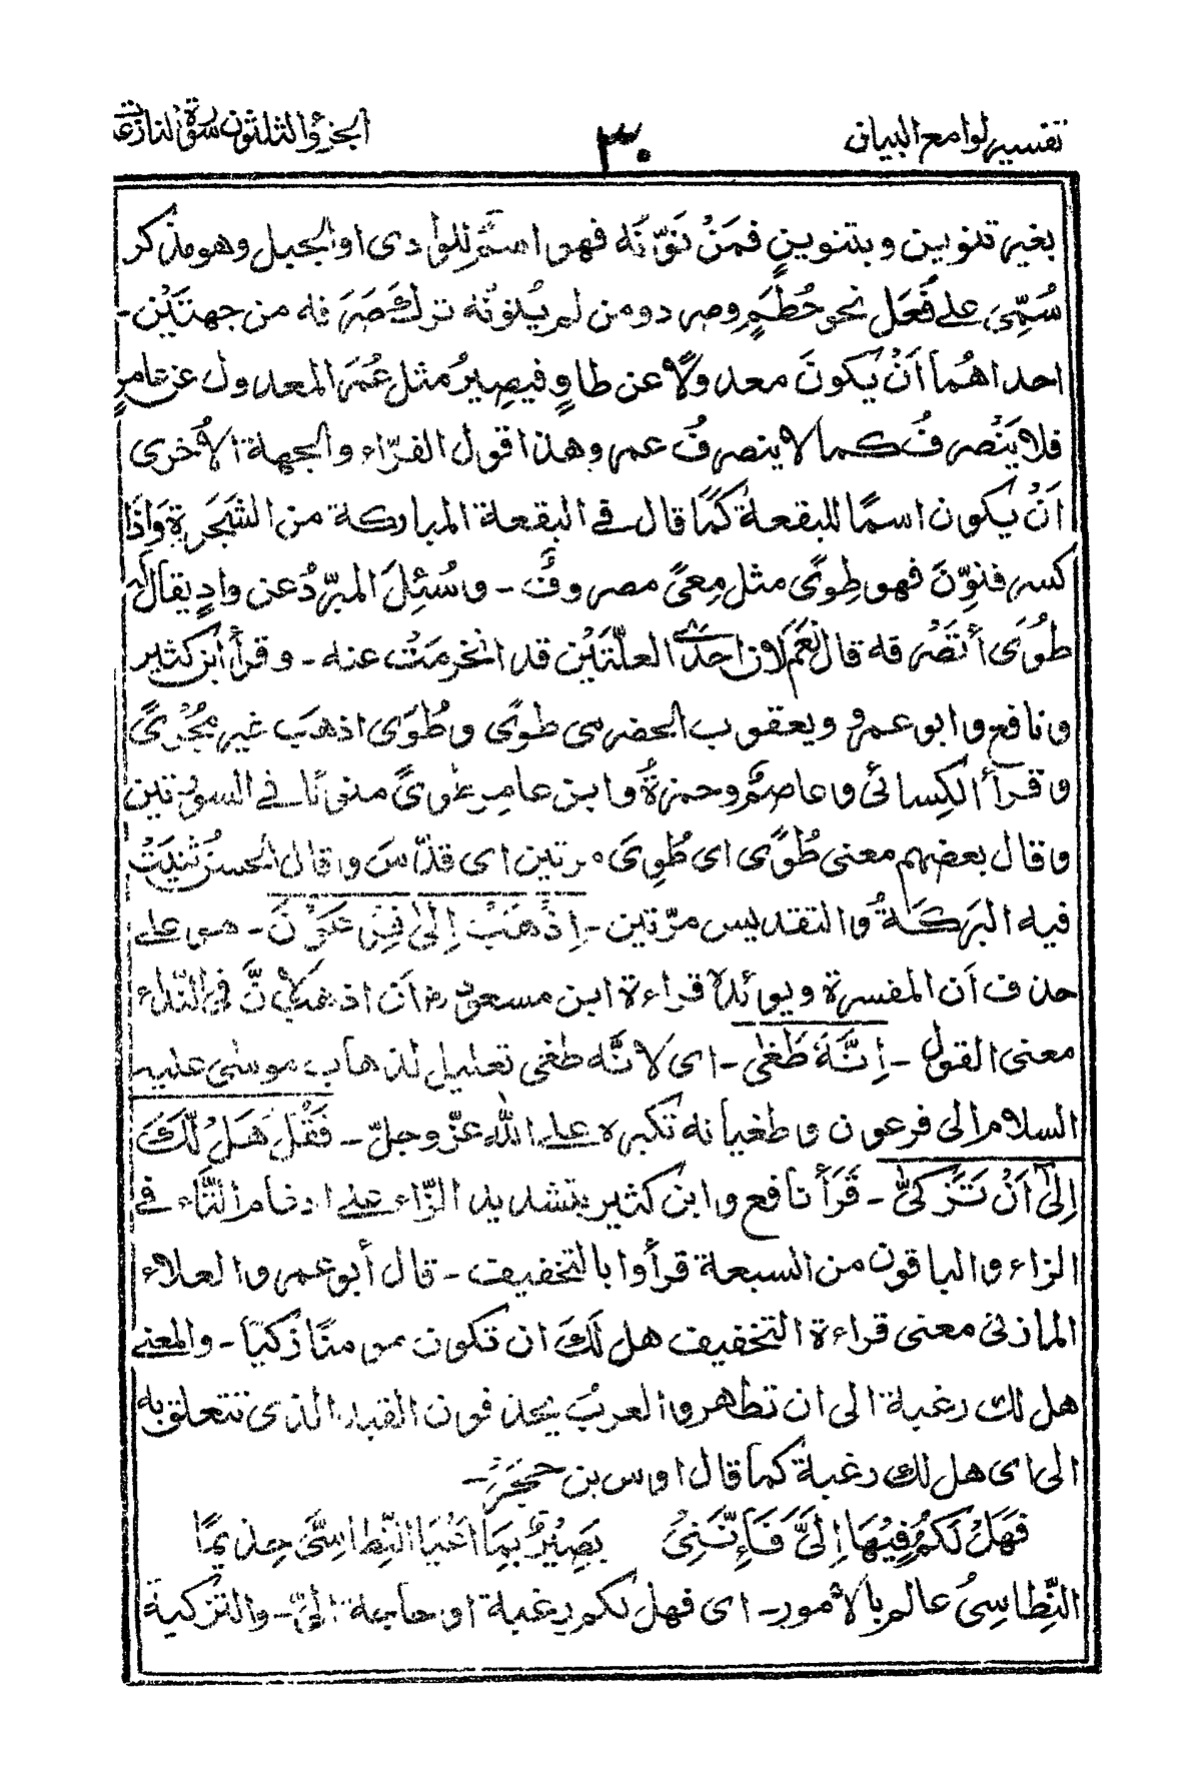 تفسير لوامع البيان
٣٠
الجزؤ الثلثون سورة النازعت
بغير تنوين و بتنوينٍ فمَنْ نَوّنَه فهو اسمٌ للوادى او الجبل وهو مذكر
سُمِّىَ على فُعَل نحو حُطَمٍ وصرد ومن لم يُنونّه ترك صَرَفه من جهتَيْن۔
احداهُما أنْ يكونَ معدولًا عن طاوٍ فيصِيرُ مثل عُمَرَ المعدول عن عامرٍ
فلا يَنْصرفُ كما لا ينصرفُ عمر وهذا قول الفرّاء والجهة الأُخرى
اَنْ يكون اسمًا للبقعة كَمَا قال فى البقعة المباركة من الشَجَرةِ وَاِذَا
كسر فنوِّنَ فهو طِوًى مثل مِعًى مصروفٌ ۔ وسُئِلَ المبرّدُ عن وادٍ يقال له
طُوًى أتَصْرفه قال نَعَم لان احدَى العلّتَيْن قد انخرمَتْ عنه ۔ وقرأ ابن كثير
ونافع وابو عمرو ويعقوب الحضرمى طوًى وطُوَى اذهَب غير مجْرًى
وقرأ الكِسائى وعاصمٌ وحمزةُ وابن عامرٍ طوىً منونًا فى السورتين
وقال بعضهم معنى طُوًى اى طُوِىَ مرتين اى قدّسَ وقال الحسن ثنيَتْ
فيه البَرَكَةُ والتقديس مرّتين ۔ اِذْهَبْ اِلىٰ فِرْعَوْنَ ۔ هو على
حذف اَن المفسرة ويوئدهٗ قراءة ابن مسعودٍ رض اَن اذهب لانَّ فى النّداء
معنى القول ۔ اِنَّهٗ طَغٰى ۔ اى لانَّه طغى تعليل لذهاب موسٰى عليه
السلام الى فرعون وطغيانه تكبره على اللّٰه عزّ وجلّ ۔ فَقُلْ هَلْ لَّكَ
اِلىٰٓ اَنْ تَزَّكىّٰ ۔ قَرَأ نافع وابن كثير بتشديد الزّاء على ادغام التَّاء فى
الزاء والباقون من السبعة قرأوا بالتخفيف ۔ قال أبو عمرو العلاء
المازنى معنى قراءة التخفيف هل لَكَ ان تكون مومنًا زكيًا ۔ والمعنى
هل لك رغبة الى ان تطهر والعربُ يحذفون القيد الذى تتعلق به
الى اى هل لك رغبة كما قال اوس بن حجَرٍ ۔
فَهَلْ لَكُمْ فِيْهَا اِلىَّ فَاِنّنِىْ بَصِيْرٌ بِمَا اَعْيَا النِّطاسِىَّ حِذيمًا
النِّطاسِىُّ عالم بالأمور ۔ اى فهل لكم رغبة او حاجة الىّ ۔ والتزكية